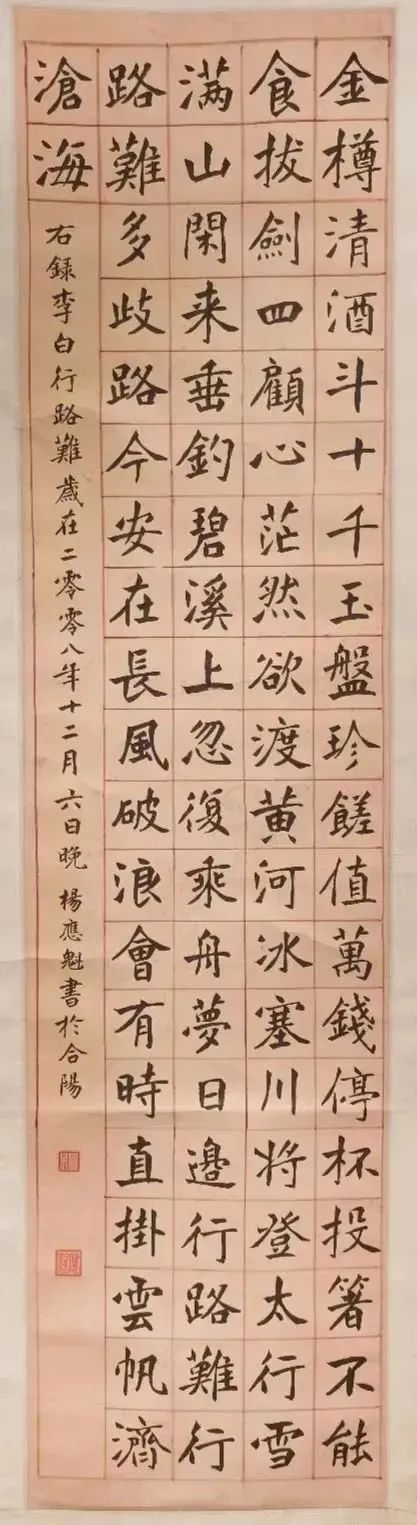 金樽清酒斗十千玉盤珍饈值萬錢停杯投箸不能
食拔劍四顧心茫然欲渡黄河冰塞川将登太行雪
满山閑来垂釣碧溪上忽復乘舟夢日邊行路難行
路難多歧路今安在長風破浪會有時直掛雲帆濟
滄海
右録李白行路難歲在二零零八年十二月六日晚 楊應魁書於合陽